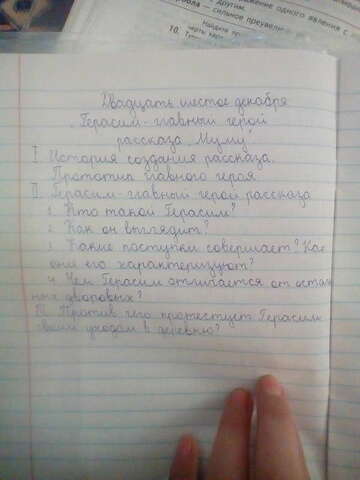 ражение одного явления с
с другим.
бола — сильное преувели
Найдите
10.
черть
Двадцать шестое декабря.
„Герасим - главный герой
рассказа „Муму"
I История создания рассказа.
Прототип главного героя.
II. Герасим - главный герой рассказа
1. Кто такой Герасим?
2. Как он выглядит?
3. Какие поступки совершает? Как
они его характеризуют?
4. Чем Герасим отличается от осталь
ных дворовых?
III. Против чего протестует Герасим
своим уходом в деревню?